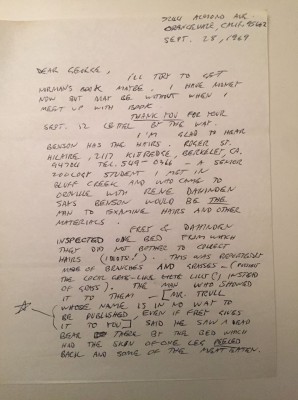 ORANGEVALE, CALIF. 95662
SEPT. 28, 1969
DEAR GEORGE,
I'LL TRY TO GET
NORMAN'S BOOK MAYBE. I HAVE MONEY
NOW BUT MAY BE WITHOUT WHEN I
MEET UP WITH BOOK
THANK YOU FOR YOUR
SEPT. 12 LETTER BY THE WAY.
I'M GLAD TO HEAR
BENSON HAS THE HAIRS. ROGER ST.
HILAIRE, 2117 KITREDGE, BERKELEY, CA.
94704 TEL. 549- A SENIOR
ZOOLOGY STUDENT I MET IN
BLUFF CREEK AND WHO CAME TO
OROVILLE WITH RENE DAHINDEN
SAYS BENSON WOULD BE THE
MAN TO EXAMINE HAIRS AND OTHER
MATERIALS.
& DAHINDEN
INSPECTED ONE BED FROM WHICH
THEY DID NOT BOTHER TO COLLECT
HAIRS (IDIOTS!). THIS WAS REPORTEDLY
MADE OF BRANCHES AND GRASSES—
THE INSTEAD
OF GRASS). THE MAN WHO SHOWED
IT TO THEM — [MR.
WHOSE NAME IS IN NO WAY TO
BE PUBLISHED, EVEN IF GIVES
IT TO YOU] SAID HE SAW A DEAD
BEAR THERE BY THE BED WHICH
HAD THE SKIN OF ONE LEG PEELED
BACK AND SOME OF THE MEAT EATEN.